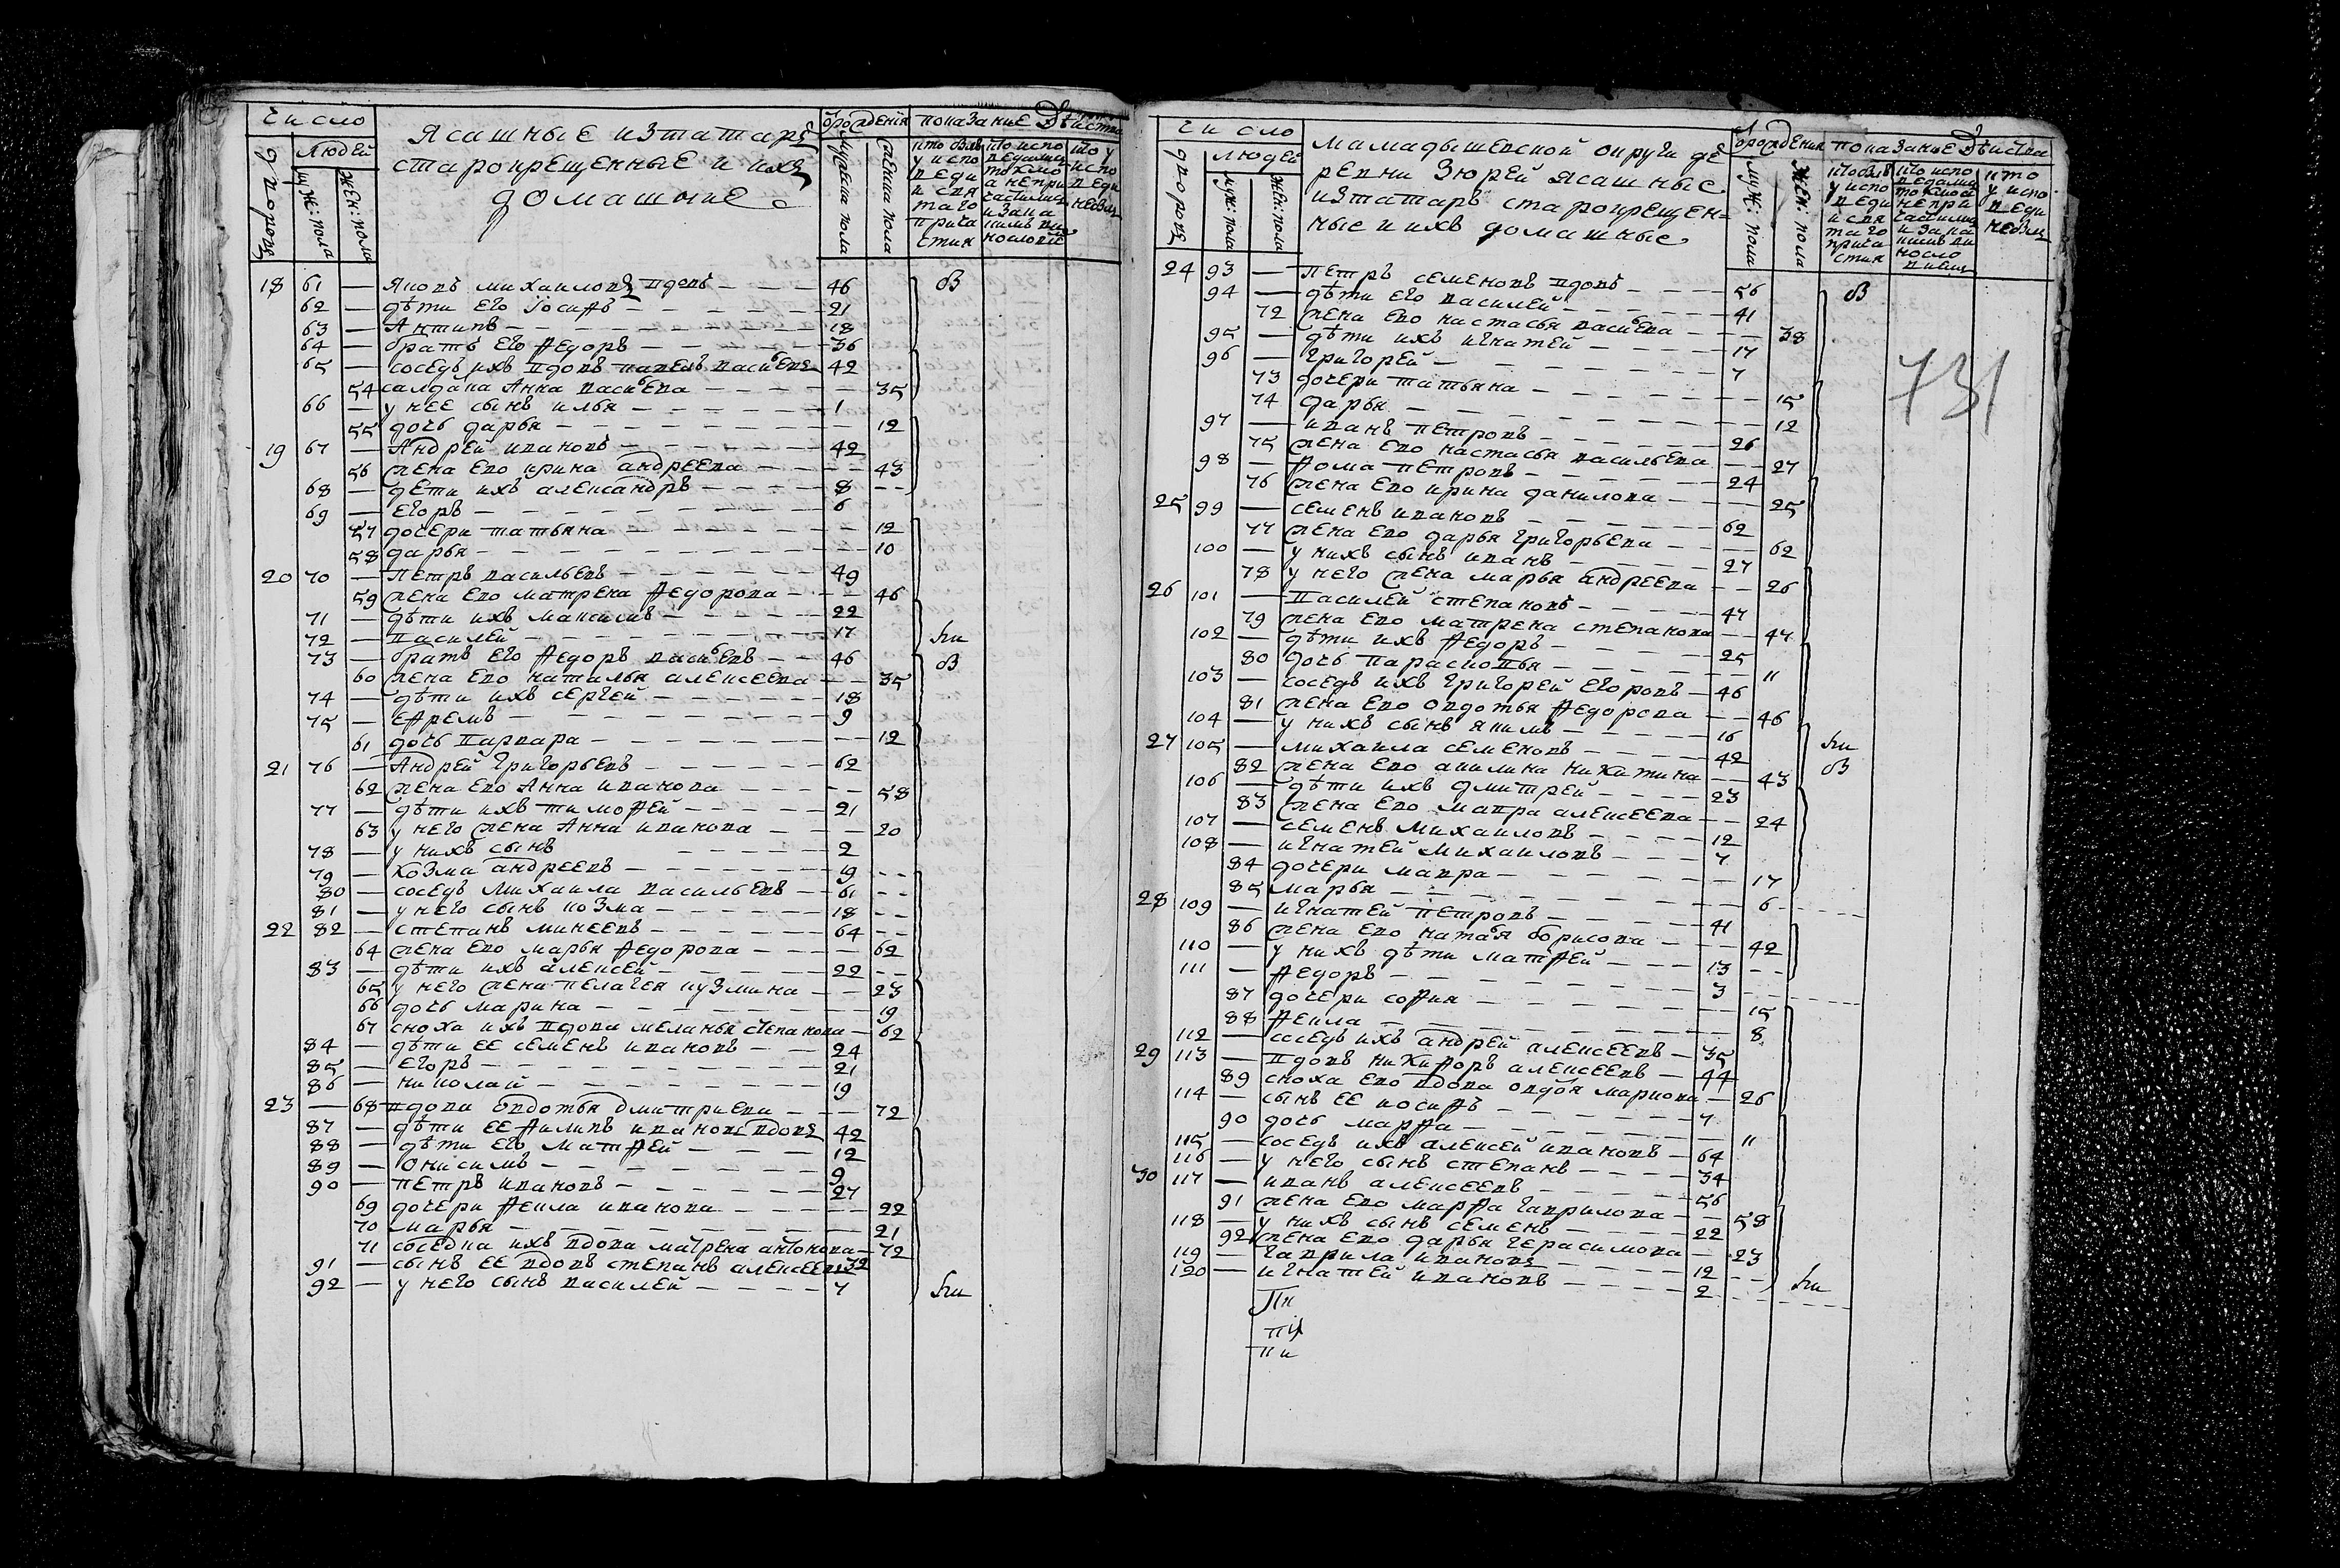 Число
Людей
дворовъ
муж: пола
жен: пола
Ясашные изтатаръ
старокрещенные и ихъ
домашние
От рождения
мужеска пола
женска пола
показание действа
кто былъ у исповеди и святаго причастия
кто исповедались токмо а не причастились и за каким винословием
кто у исповеди небылъ
18 61 — Яковъ михаиловъ вдовъ 46 в
62 — дѣти его Iосифъ 21
63 — Антипъ 18
64 — братъ его федоръ 36
65 — соседъ ихъ вдовъ павелъ васильевъ 42
54 салдатка Анна васильева 35
66 — у нее сынъ илья 1
55 дочь дарья 12
19 67 — Андрей ивановъ 42
56 жена ево ирина андреева 43
68 — дети ихъ александръ 8
69 — егоръ 6
57 дочери татьяна 12
58 дарья 10
20 70 — Петръ васильевъ 49
59 жена ево матрена федорова 46
71 — дѣти ихъ максимъ 22
72 — василей 17
73 — братъ его федоръ васильевъ 46 в
60 жена ево наталья алексеева 35
74 — дѣти ихъ сергей 18
75 — ефремъ 9
61 дочь варвара 12
21 76 — Андрей григорьевъ 62
62 жена ево Анна иванова 58
77 — дѣти ихъ тимофей 21
63 у него жена Анна иванова 20
78 — у нихъ сынъ 2
79 — козма андреевъ 19
80 — соседъ михаила васильевъ 61
81 — у него сынъ козма 18
22 82 — степанъ минеевъ 64
64 жена ево марья федорова 62
83 — дѣти ихъ алексей 22
65 у него жена пелагея кузмина 23
66 дочь марина 19
67 сноха ихъ вдова меланья степанова 62
84 — дѣти ее семенъ ивановъ 24
85 — егоръ 21
86 — николай 19
23 — 68 вдова овдотья дмитриева 72
87 — дѣти ее филипъ ивановъ вдовъ 42
88 — дѣти его матфей 12
89 — онисимъ 9
90 — петръ ивановъ 27
69 дочери фекла иванова 22
70 марья 21
71 соседка ихъ вдова матрена антонова 72
91 — сынъ ее вдовъ степанъ алексеевъ 32
92 — у него сынъ василей 7
Число
Людей
дворовъ
муж: пола
жен: пола
мамадышевской округи де
ревни Зюрей ясашные
изтатаръ старокрещен=
ные и ихъ домашные
От рождения
муж: пола
жен: пола
показание действа
кто былъ у исповеди и святаго причастия
кто исповедались токмо а непричастились и за каким винословием
кто у исповеди небылъ
24 93 — петръ семеновъ вдовъ 56 в
94 — дѣти его василей 41
72 жена ево настасья васильева 38
95 — дѣти ихъ игнатей 17
96 — григорей 7
73 дочери татьяна 15
74 дарья 12
97 — иванъ петровъ 26
75 жена ево настасья васильева 27
98 — фома петровъ 24
76 жена ево ирина данилова 25
25 99 — семенъ ивановъ 62
77 жена ево дарья григорьева 62
100 — у нихъ сынъ иванъ 27
78 у него жена марья андреева 26
26 101 — василей степановъ 47
79 жена ево матрена степанова 47
102 — дѣти ихъ федоръ 25
80 дочь парасковья 11
103 — соседъ ихъ григорей егоровъ 46
81 жена ево овдотья федорова 46
104 — у нихъ сынъ якимъ 16
27 105 — михаила семеновъ 42 в
82 жена ево акилина никитина 43
106 — дѣти ихъ дмитрей 23
83 жена ево мавра алексеева 24
107 — семенъ михаиловъ 12
108 — игнатей михаиловъ 7
84 дочери мавра 17
85 марья 6
28 109 — игнатей петровъ 41
86 жена ево наталья борисова 42
110 — у нихъ дѣти матфей 13
111 — федоръ 3
87 дочери софия 15
88 фекла 8
112 — соседъ ихъ андрей алексеевъ 35
29 113 — вдовъ никифоръ алексеевъ 44
89 сноха ево вдова овдотья маркова 26
114 — сынъ ее иосифъ 7
90 дочь марфа 11
115 — соседъ ихъ алексей ивановъ 64
116 — у него сынъ степанъ 34
30 117 — иванъ алексеевъ 56
91 жена ево марфа гаврилова 58
118 — у нихъ сынъ семенъ 22
92 жена ево дарья герасимова 23
119 — гаврила ивановъ 12
120 — игнатей ивановъ 2
731